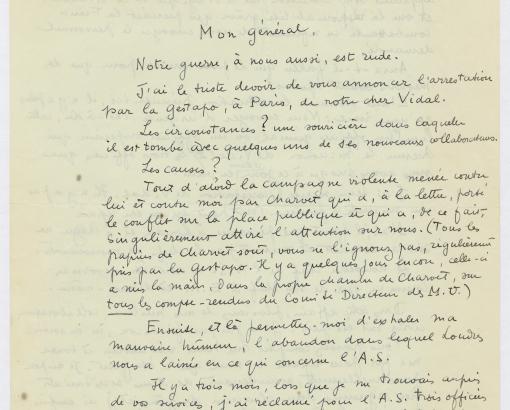 Mon général,
Notre guerre, à nous aussi, est rude.
J'ai le triste devoir de vous annoncer l'arrestation
par la Gestapo, à Paris, de notre cher Vidal.
Les circonstances ? une souricière dans laquelle
il est tombé avec quelques uns de ses nouveaux collaborateurs.
Les causes ?
Tout d'abord la campagne violente menée contre
lui et contre moi par Charvet qui a, à la lettre, porté
le conflit sur la place publique et qui a, de ce fait,
singulièrement attiré l'attention sur nous. (Tous les
papiers de Charvet sont, vous ne l'ignorez pas, régulièrement
pris par la Gestapo. Il y a quelques jours encore, celle-ci
a mis la main, dans la propre chambre de Charvet, sur
tous les compte-rendus du Comité Directeur des M.U.)
Ensuite, et là permettez-moi d'exhaler ma
mauvaise humeur, l'abandon dans lequel Londres
nous a laissés en ce qui concerne l'A.S.
Il y a trois mois, lors que je me trouvais auprès
de vos services, j'ai réclamé pour l'A.S. trois officiers